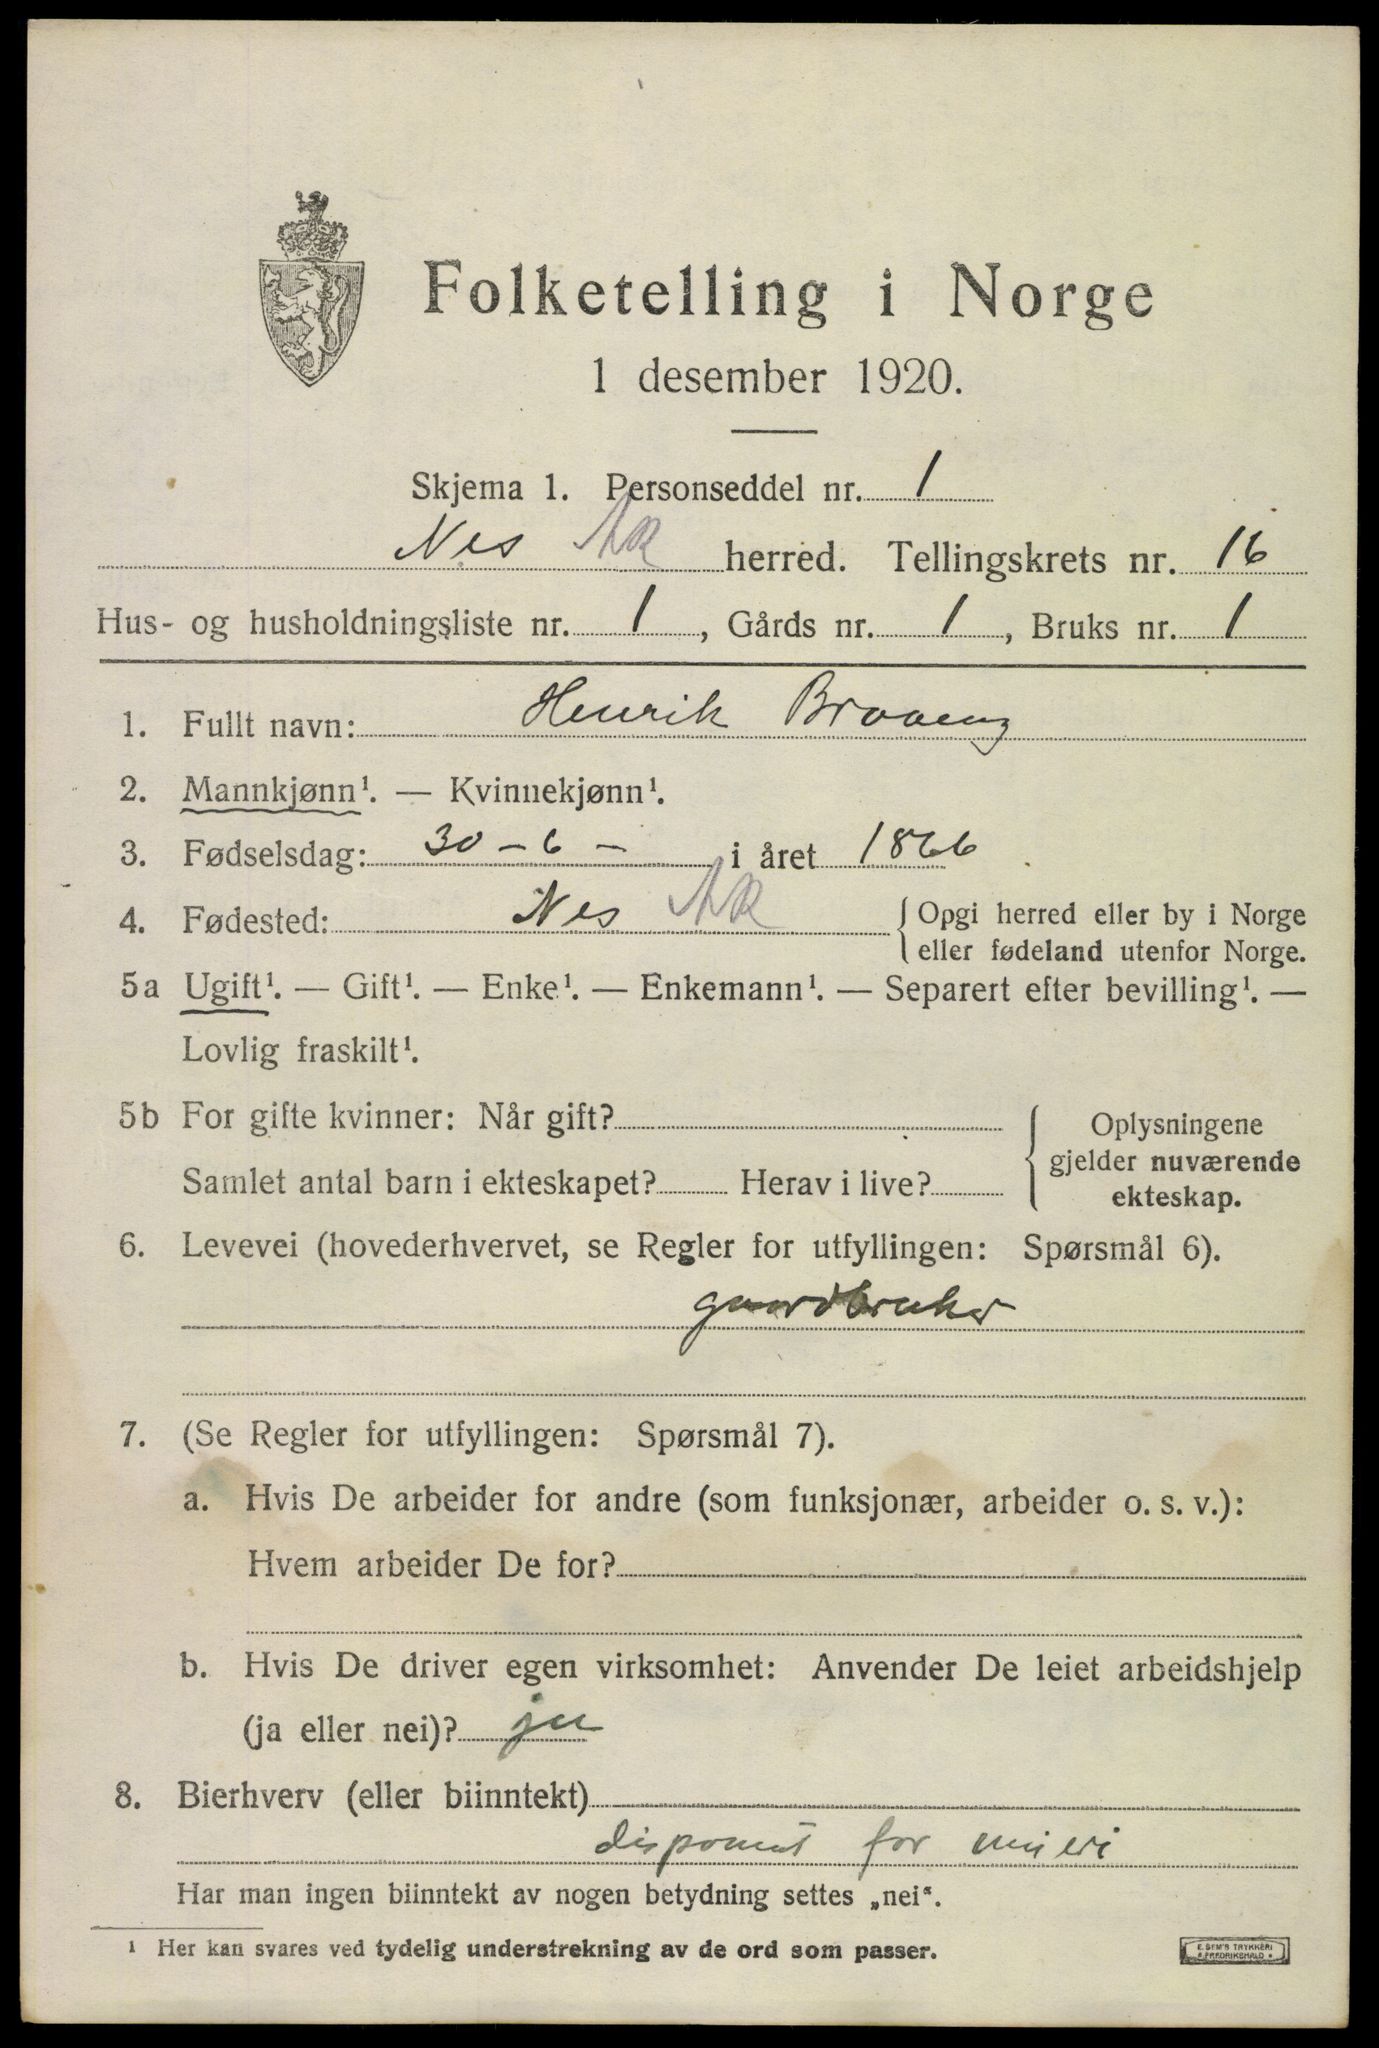 Folketelling i Norge
1 desember 1920.
Skjema 1. Personseddel nr. 1
Nes AK herred. Tellingskrets nr. 16
Hus- og husholdningsliste nr. 1, Gårds nr. 1, Bruks nr. 1
1. Fullt navn: Henrik
2. Mannkjønn¹. — Kvinnekjønn¹.
3. Fødselsdag: 30 – 6 – i året 1866
4. Fødested: Nes AK { Opgi herred eller by i Norge
eller fødeland utenfor Norge.
5a Ugift¹. — Gift¹. — Enke¹. — Enkemann¹. — Separert efter bevilling¹. —
Lovlig fraskilt¹.
5b For gifte kvinner: Når gift? { Oplysningene
gjelder nuværende
Samlet antal barn i ekteskapet? Herav i live? ekteskap.
6. Levevei (hovederhvervet, se Regler for utfyllingen: Spørsmål 6).
gaardbruker
7. (Se Regler for utfyllingen: Spørsmål 7).
a. Hvis De arbeider for andre (som funksjonær, arbeider o. s. v.):
Hvem arbeider De for?
b. Hvis De driver egen virksomhet: Anvender De leiet arbeidshjelp
(ja eller nei)? ja
8. Bierhverv (eller biinntekt)
disponent for mieri
Har man ingen biinntekt av nogen betydning settes „nei“.
¹ Her kan svares ved tydelig understrekning av de ord som passer.
E. SEM'S TRYKKERI
FREDRIKSHALD